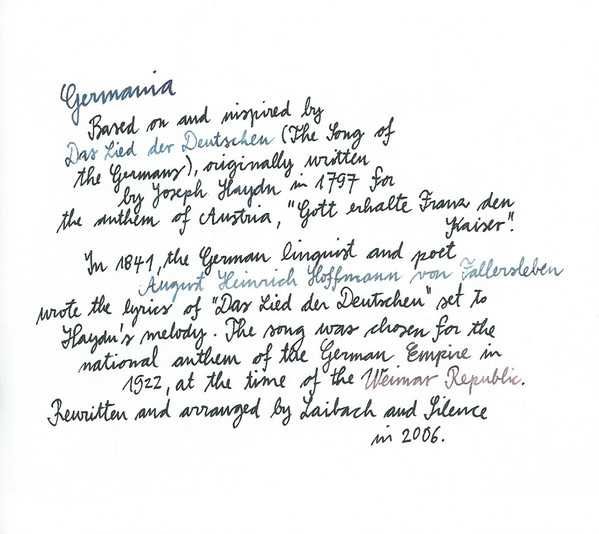 Germania
Based on and inspired by
Das Lied der Deutschen (The Song of
the Germans), originally written
by Joseph Haydn in 1797 for
the anthem of Austria, "Gott erhalte Franz den
Kaiser".
In 1841, the German linguist and poet
August Heinrich Hoffmann von Fallersleben
wrote the lyrics of "Das Lied der Deutschen" set to
Haydn's melody. The song was chosen for the
national anthem of the German Empire in
1922, at the time of the Weimar Republic.
Rewritten and arranged by Laibach and Silence
in 2006.